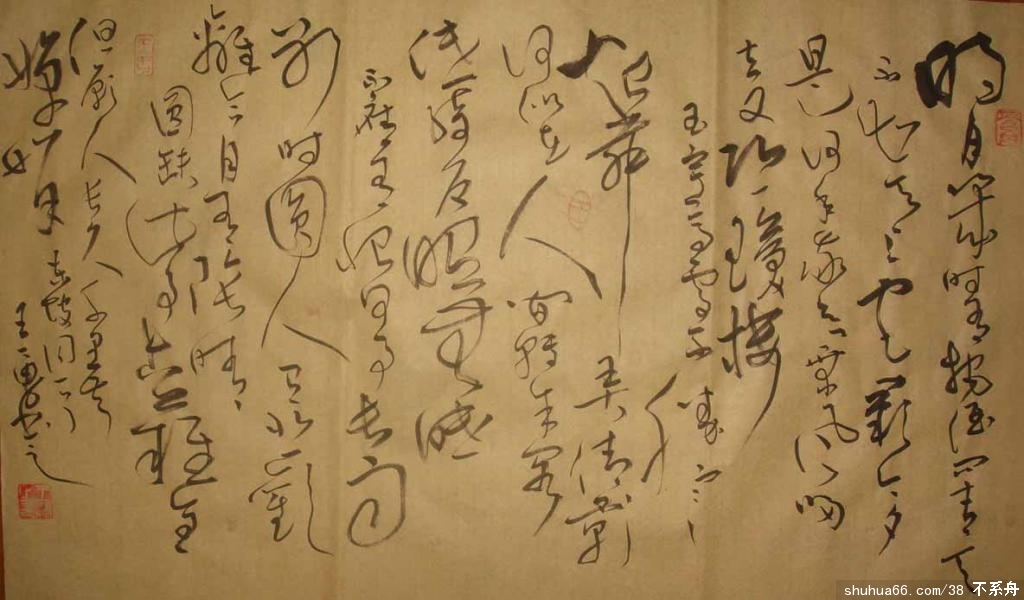 明月幾時有把酒問青天
不知天上宮闕今夕
是何年我欲乘风归
去又恐瓊樓
玉宇高處不勝寒
起舞弄清影
何似在人間轉朱閣
低綺户照無眠
不應有恨何事长向
别時圓人有悲歡
離合月有陰晴
圓缺此事古難全
但願人长久千里共
嬋娟
東坡詞一首
王勇书之
shuhua66.com/38 不系舟